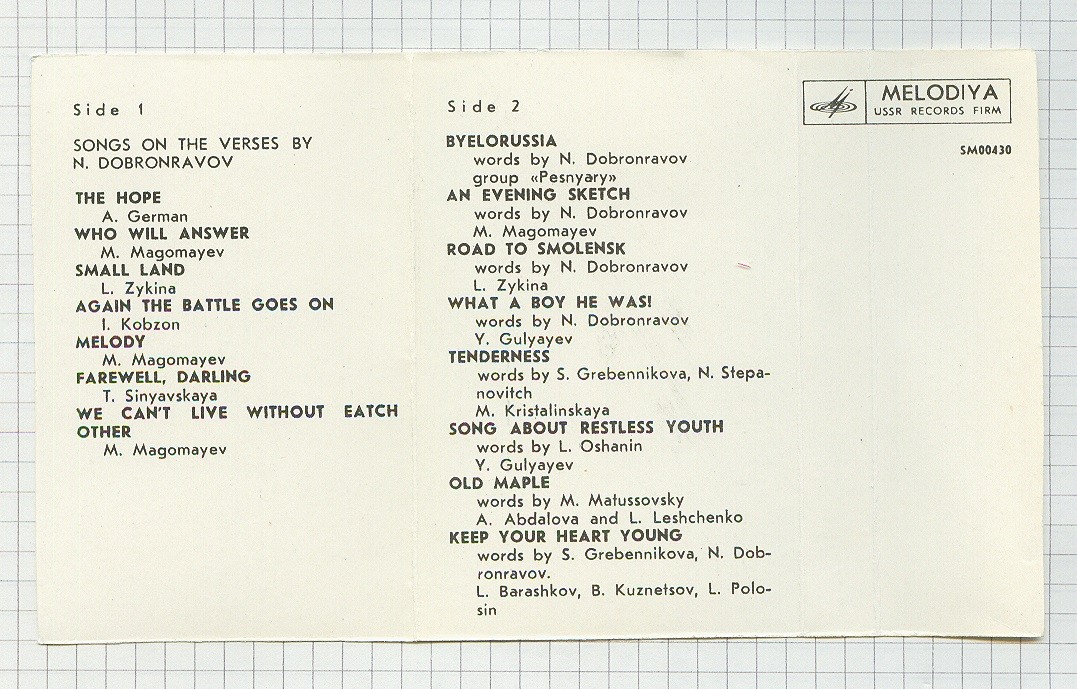 Side 1
SONGS ON THE VERSES BY
N. DOBRONRAVOV
THE HOPE
A. German
WHO WILL ANSWER
M. Magomayev
SMALL LAND
L. Zykina
AGAIN THE BATTLE GOES ON
I. Kobzon
MELODY
M. Magomayev
FAREWELL, DARLING
T. Sinyavskaya
WE CAN'T LIVE WITHOUT EATCH
OTHER
M. Magomayev
Side 2
BYELORUSSIA
words by N. Dobronravov
group «Pesnyary»
AN EVENING SKETCH
words by N. Dobronravov
M. Magomayev
ROAD TO SMOLENSK
words by N. Dobronravov
L. Zykina
WHAT A BOY HE WAS!
words by N. Dobronravov
Y. Gulyayev
TENDERNESS
words by S. Grebennikova, N. Stepa-
novitch
M. Kristalinskaya
SONG ABOUT RESTLESS YOUTH
words by L. Oshanin
Y. Gulyayev
OLD MAPLE
words by M. Matussovsky
A. Abdalova and L. Leshchenko
KEEP YOUR HEART YOUNG
words by S. Grebennikova, N. Dob-
ronravov.
L. Barashkov, B. Kuznetsov, L. Polo-
sin
MELODIYA
USSR RECORDS FIRM
SM00430